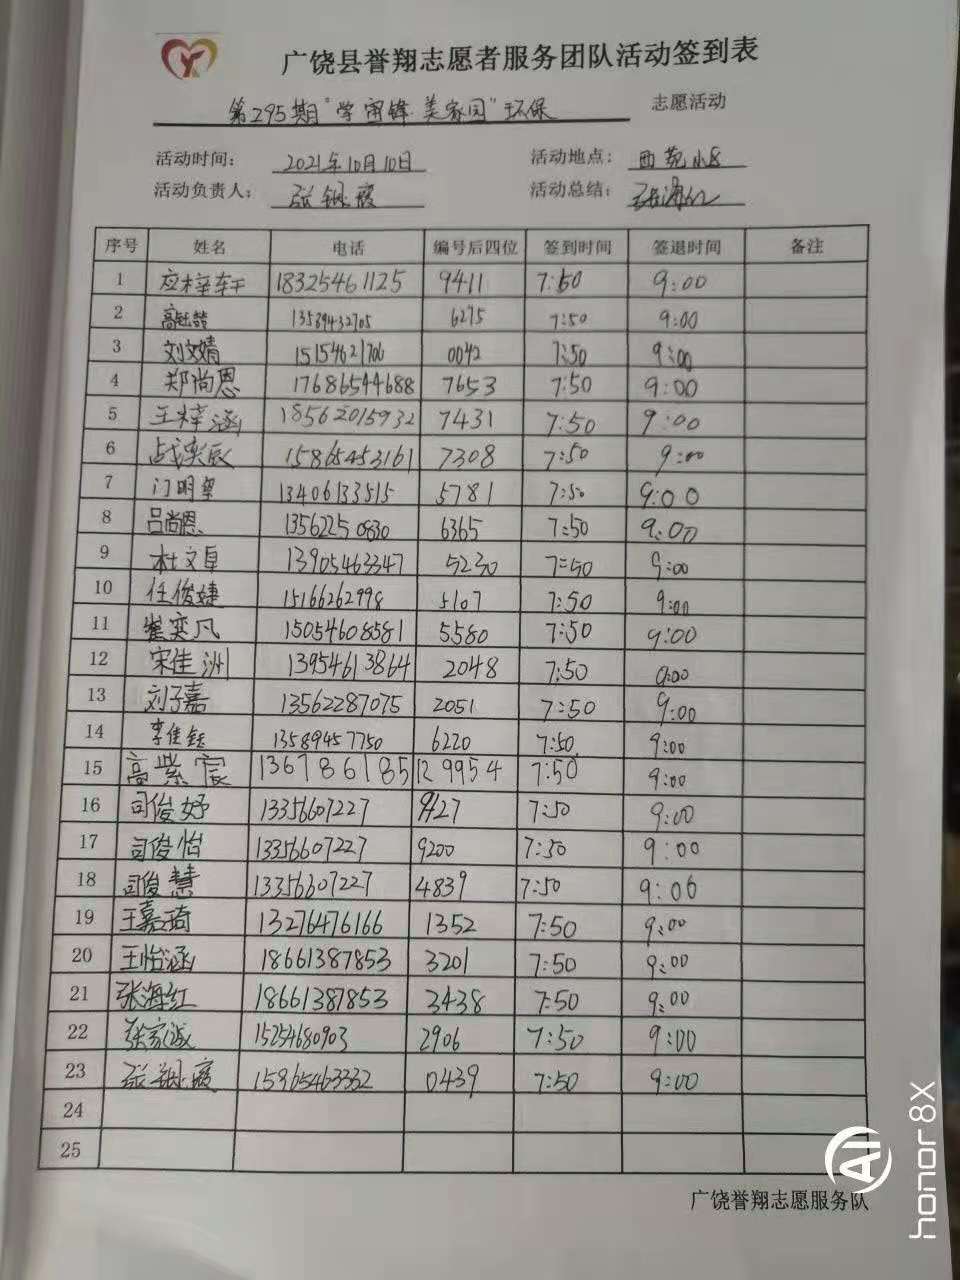 广饶县誉翔志愿者服务团队活动签到表
第295期"学雷锋 美家园"环保 志愿活动
活动时间: 2021年10月10日 活动地点: 西苑小区
活动负责人: 张银霞 活动总结: 张海红
序号 姓名 电话 编号后四位 签到时间 签退时间 备注
1 应梓轩 18325461125 9411 7:50 9:00
2 13589432705 6275 7:50 9:00
3 刘文婧 15154621706 0042 7:50 9:00
4 郑尚恩 17686544688 7653 7:50 9:00
5 王梓涵 18562015932 7431 7:50 9:00
6 占奕辰 15865453161 7308 7:50 9:00
7 门明望 13406133515 5781 7:50 9:00
8 吕尚恩 13562250830 6365 7:50 9:00
9 杜文卓 13905463347 5230 7:50 9:00
10 任俊婕 15166262998 5107 7:50 9:00
11 崔奕凡 15054608581 5580 7:50 9:00
12 宋佳洲 13954613864 2048 7:50 9:00
13 刘子嘉 13562287075 2051 7:50 9:00
14 李佳钰 13589457750 6220 7:50 9:00
15 高紫宸 13678618512 9954 7:50 9:00
16 司俊妤 13356607227 9427 7:50 9:00
17 司俊怡 13356607227 9200 7:50 9:00
18 司俊慧 13356607227 4839 7:50 9:00
19 王嘉琦 13276476166 1352 7:50 9:00
20 王怡涵 18661387853 3201 7:50 9:00
21 张海红 18661387853 3438 7:50 9:00
22 张家诚 15254680903 2906 7:50 9:00
23 张银霞 15965463332 0439 7:50 9:00
24
25
广饶誉翔志愿服务队
AI
honor 8X